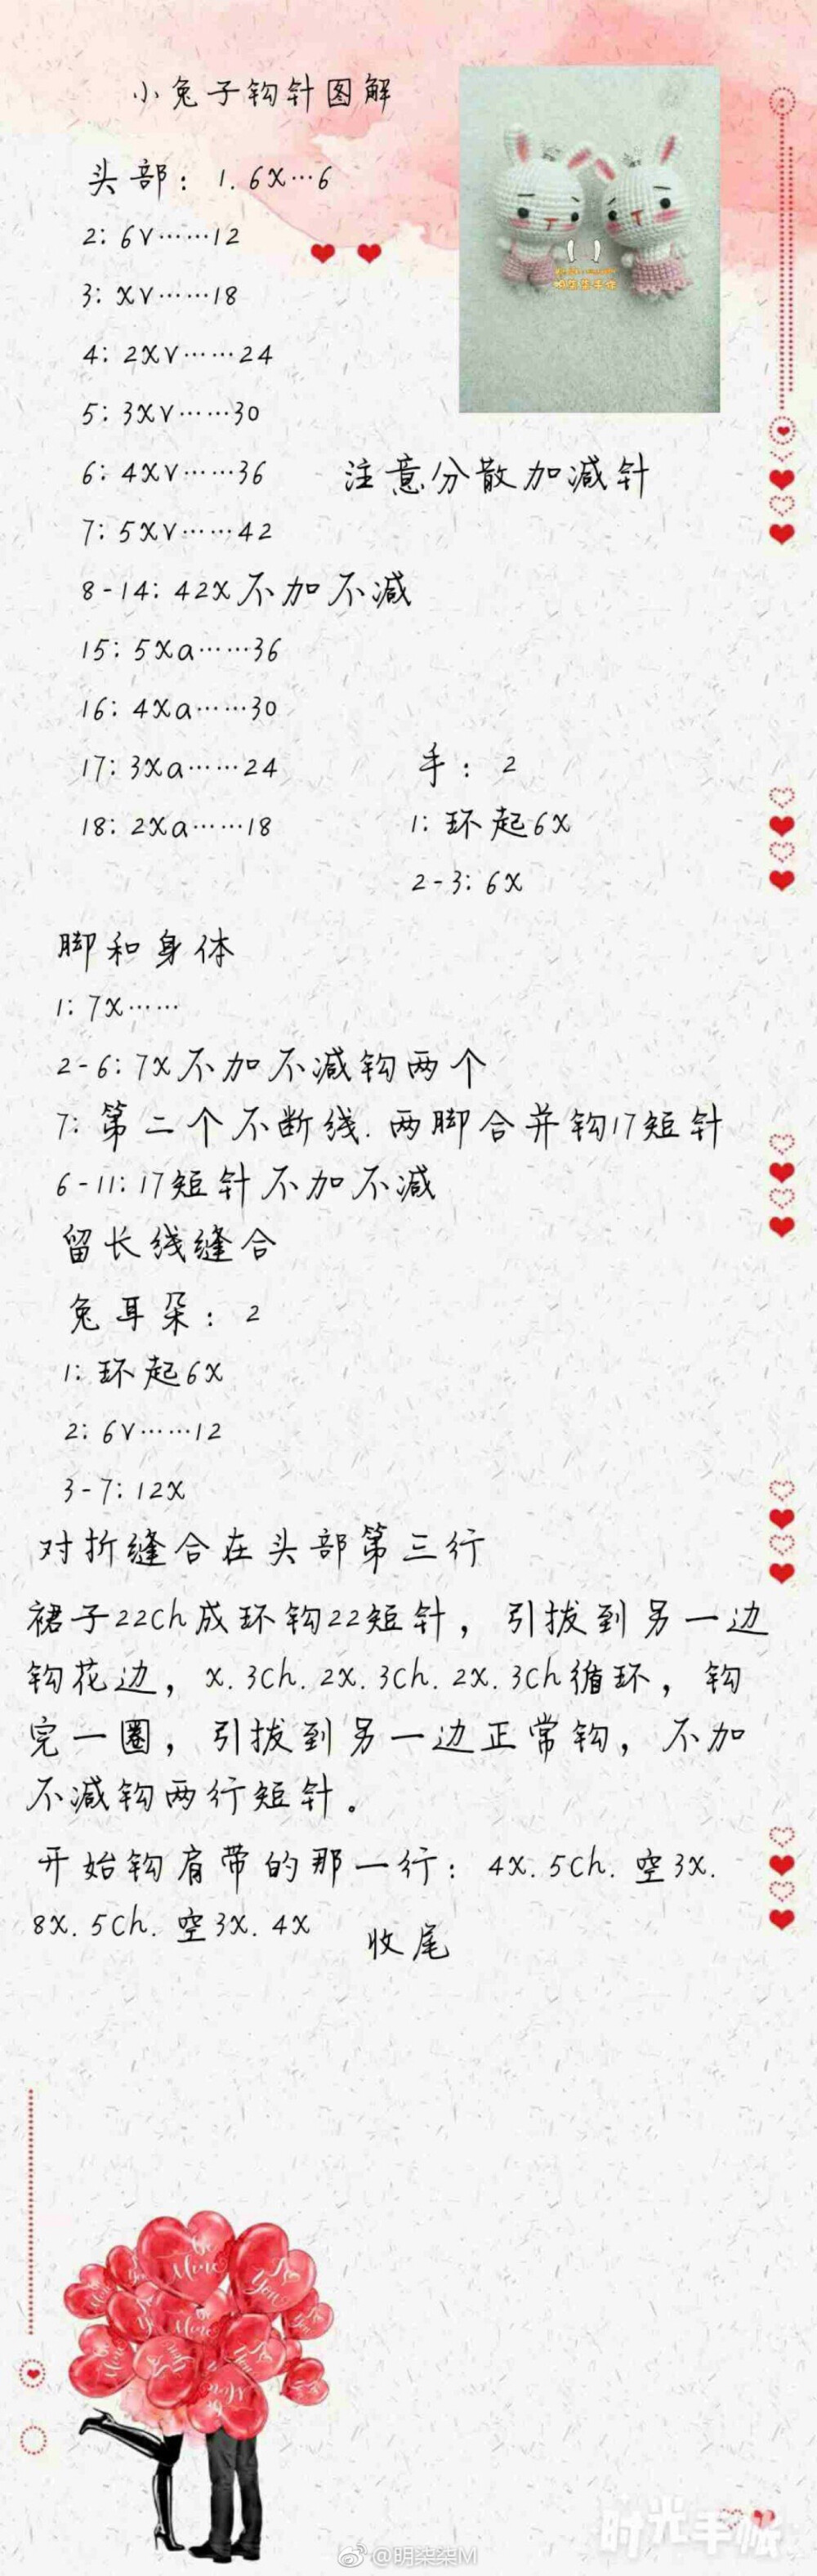 小兔子钩针图解
头部：1.6X…6
2：6V……12
3：XV……18
4：2XV……24
5：3XV……30
6：4XV……36
注意分散加减针
7：5XV……42
8-14：42X不加不减
15：5Xa……36
16：4Xa……30
17：3Xa……24
18：2Xa……18
手：2
1：环起6X
2-3：6X
脚和身体
1：7X……
2-6：7X不加不减钩两个
7：第二个不断线.两脚合并钩17短针
6-11：17短针不加不减
留长线缝合
兔耳朵：2
1：环起6X
2：6V……12
3-7：12X
对折缝合在头部第三行
裙子22ch成环钩22短针，引拔到另一边
钩花边，x.3ch.2x.3ch.2x.3ch循环，钩
完一圈，引拔到另一边正常钩，不加
不减钩两行短针。
开始钩肩带的那一行：4x.5ch.空3x.
8x.5ch.空3x.4x
收尾
Be Mine
I ♥ You
时光手帐
@明柒柒M